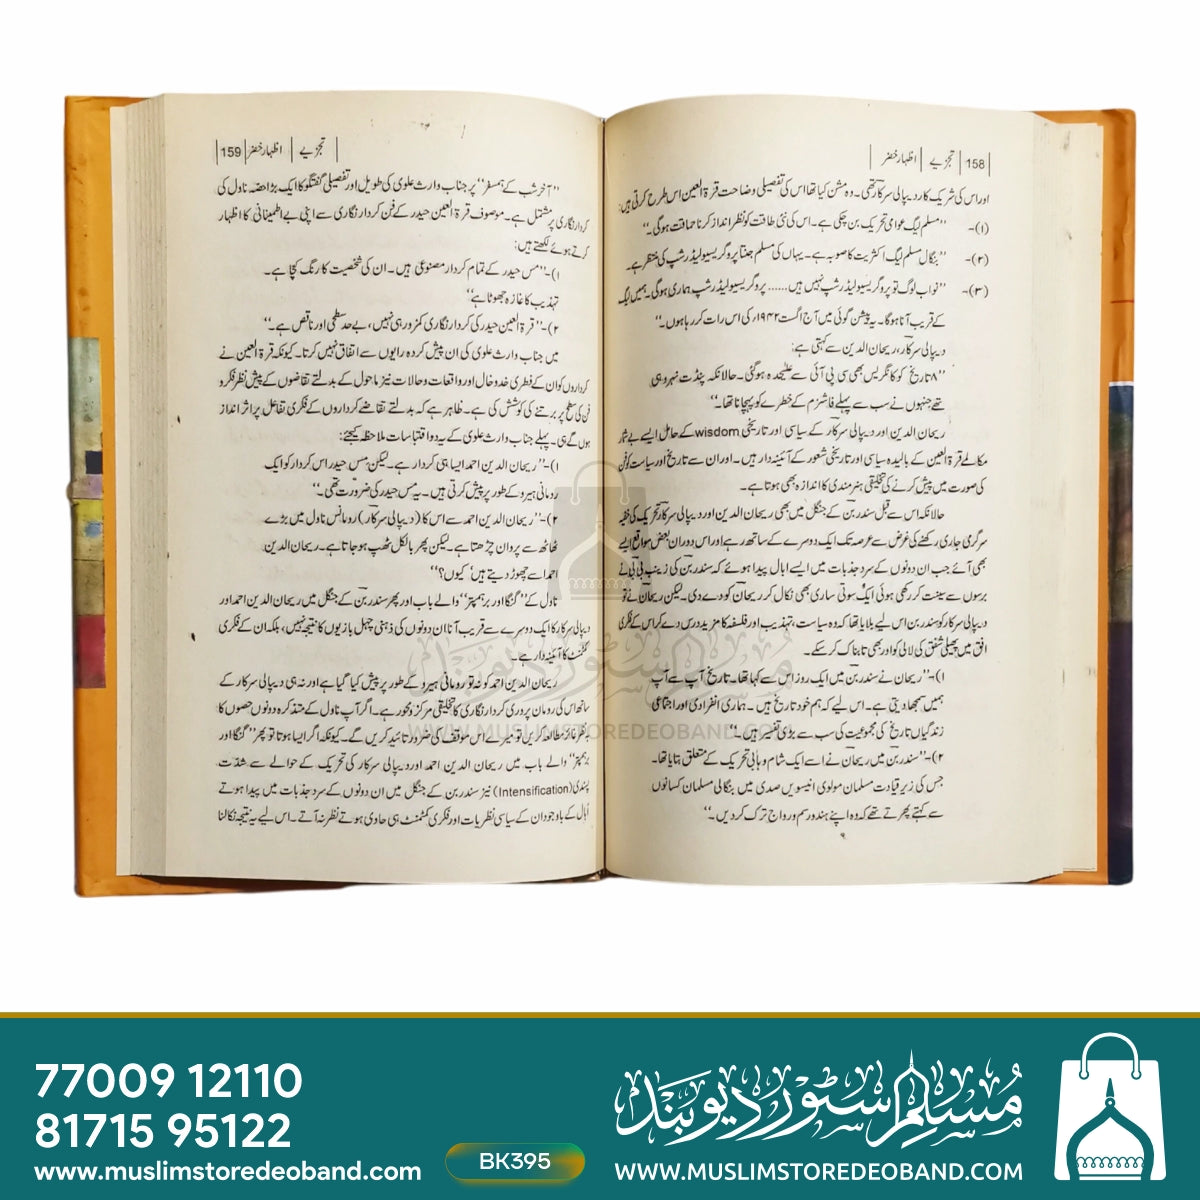 158 | تجزیے | اظہار خضر
اور اس کی شریک کار دیپالی سرکار تھی۔ وہ مشن کیا تھا اس کی تفصیلی وضاحت قرۃ العین اس طرح کرتی ہیں:
(۱)- ’’مسلم لیگ عوامی تحریک بن چکی ہے۔ اس کی نئی طاقت کو نظر انداز کرنا حماقت ہوگی۔‘‘
(۲)- ’’بنگال مسلم لیگ اکثریت کا صوبہ ہے۔ یہاں کی مسلم جنتا پروگریسیو لیڈر شپ کی منتظر ہے۔
(۳)- ’’نواب لوگ تو پروگریسیو لیڈر شپ نہیں ہیں...... پروگریسیو لیڈر شپ ہماری ہوگی۔ ہمیں لیگ
کے قریب آنا ہوگا۔ یہ پیشن گوئی میں آج اگست ۱۹۴۲ء کی اس رات کر رہا ہوں۔‘‘
دیپالی سرکار، ریحان الدین سے کہتی ہے:
’’۸ تاریخ کو کانگریس بھی سی پی آئی سے علیٰحدہ ہوگئی۔ حالانکہ پنڈت نہرو ہی
تھے جنہوں نے سب سے پہلے فاشزم کے خطرے کو پہچانا تھا۔‘‘
ریحان الدین اور دیپالی سرکار کے سیاسی اور تاریخی wisdom کے حامل ایسے بے شمار
مکالمے قرۃ العین کے بالیدہ سیاسی اور تاریخی شعور کے آئینہ دار ہیں۔ اور ان سے تاریخ اور سیاست کو فن
کی صورت میں پیش کرنے کی تخلیقی ہنرمندی کا اندازہ بھی ہوتا ہے۔
حالانکہ اس سے قبل سندربن کے جنگل میں بھی ریحان الدین اور دیپالی سرکار تحریک کی خفیہ
سرگرمی جاری رکھنے کی غرض سے عرصہ تک ایک دوسرے کے ساتھ رہے اور اس دوران بعض مواقع ایسے
بھی آئے جب ان دونوں کے سرد جذبات میں ایسے ابال پیدا ہوئے کہ سندربن کی زینب بی بی نے
برسوں سے سینت کر رکھی ہوئی ایک سوتی ساری بھی نکال کر ریحان کو دے دی۔ لیکن ریحان نے تو
دیپالی سرکار کو سندربن اس لیے بلایا تھا کہ وہ سیاست، تہذیب اور فلسفہ کا مزید درس دے کر اس کے فکری
افق میں پھیلی شفق کی لالی کو اور بھی تابناک کر سکے۔
۱)- ’’ریحان نے سندربن میں ایک روز اس سے کہا تھا۔ تاریخ آپ سے آپ
ہمیں سمجھا دیتی ہے۔ اس لیے کہ ہم خود تاریخ ہیں۔ ہماری انفرادی اور اجتماعی
زندگیاں تاریخ کی مجموعیت کی سب سے بڑی تفسیر ہیں۔‘‘
۲)- ’’سندربن میں ریحان نے اسے ایک شام وہابی تحریک کے متعلق بتایا تھا۔
جس کی زیر قیادت مسلمان مولوی انیسویں صدی میں بنگالی مسلمان کسانوں
سے کہتے پھرتے تھے کہ وہ اپنے ہندو رسم و رواج ترک کر دیں۔‘‘
تجزیے | اظہار خضر | 159
’’آخر شب کے ہمسفر‘‘ پر جناب وارث علوی کی طویل اور تفصیلی گفتگو کا ایک بڑا حصہ ناول کی
کردار نگاری پر مشتمل ہے۔ موصوف قرۃ العین حیدر کے فن کردار نگاری سے اپنی بے اطمینانی کا اظہار
کرتے ہوئے لکھتے ہیں:
۱)- ’’مس حیدر کے تمام کردار مصنوعی ہیں۔ ان کی شخصیت کا رنگ کچا ہے۔
تہذیب کا غازہ جھوٹا ہے‘‘
۲)- ’’قرۃ العین حیدر کی کردار نگاری کمزور ہی نہیں، بے حد سطحی اور ناقص ہے۔‘‘
میں جناب وارث علوی کی ان پیش کردہ رایوں سے اتفاق نہیں کرتا۔ کیونکہ قرۃ العین نے
کرداروں کو ان کے فطری خدوخال اور واقعات و حالات نیز ماحول کے بدلتے تقاضوں کے پیش نظر فکر و
فن کی سطح پر برتنے کی کوشش کی ہے۔ ظاہر ہے کہ بدلتے تقاضے کرداروں کے فکری تفاعل پر اثر انداز
ہوں گے ہی۔ پہلے جناب وارث علوی کے یہ دو اقتباسات ملاحظہ کیجئے:
۱)- ’’ریحان الدین احمد ایسا ہی کردار ہے۔ لیکن مس حیدر اس کردار کو ایک
رومانی ہیرو کے طور پر پیش کرتی ہیں۔ یہ مس حیدر کی ضرورت تھی۔‘‘
۲)- ’’ریحان الدین احمد سے اس کا (دیپالی سرکار) رومانس ناول میں بڑے
ٹھاٹھ سے پروان چڑھتا ہے۔ لیکن پھر بالکل ٹھپ ہو جاتا ہے۔ ریحان الدین
احمد اسے چھوڑ دیتے ہیں، کیوں؟‘‘
ناول کے ’’گنگا اور برہمپتر‘‘ والے باب اور پھر سندربن کے جنگل میں ریحان الدین احمد اور
دیپالی سرکار کا ایک دوسرے سے قریب آنا ان دونوں کی ذہنی چہل بازیوں کا نتیجہ نہیں، بلکہ ان کے فکری
کمٹمنٹ کا آئینہ دار ہے۔
ریحان الدین احمد کو نہ تو رومانی ہیرو کے طور پر پیش کیا گیا ہے اور نہ ہی دیپالی سرکار کے
ساتھ اس کی رومان پروری کردار نگاری کا تخلیقی مرکز و محور ہے۔ اگر آپ ناول کے متذکرہ دونوں حصوں کا
بنظر غائر مطالعہ کریں تو میرے اس موقف کی ضرور تائید کریں گے۔ کیونکہ اگر ایسا ہوتا تو پھر ’’گنگا اور
برہمپتر‘‘ والے باب میں ریحان الدین احمد اور دیپالی سرکار کی تحریک کے حوالے سے شدت
پسندی (Intensification) نیز سندربن کے جنگل میں ان دونوں کے سرد جذبات میں پیدا ہوتے
اُبال کے باوجود ان کے سیاسی نظریات اور فکری کمٹمنٹ ہی حاوی ہوتے نظر نہ آتے۔ اس لیے یہ نتیجہ نکالنا
مسلم سٹور دیوبند
WWW.MUSLIMSTOREDEOBAND.COM
77009 12110
81715 95122
www.muslimstoredeoband.com
BK395
مسلم سٹور دیوبند
WWW.MUSLIMSTOREDEOBAND.COM